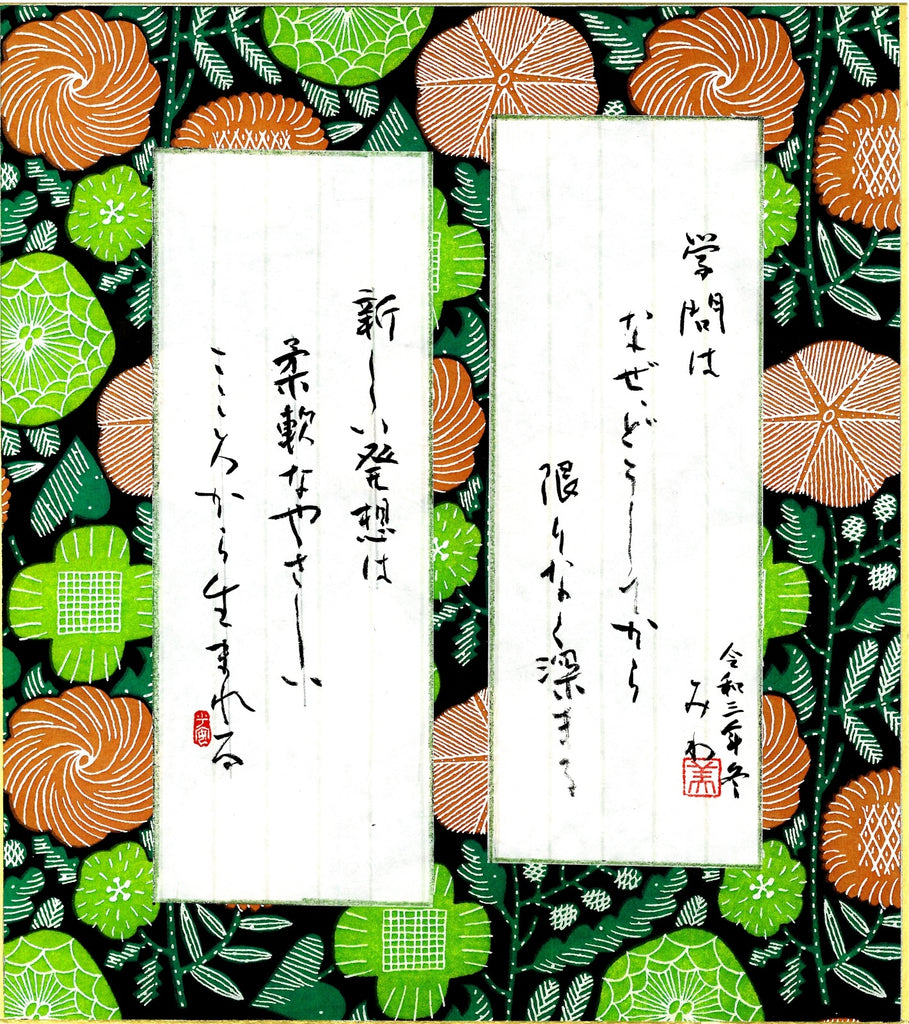 学問は
なぜ、どうしてから
限りなく深まる
令和三年冬
みわ
美
新しい発想は
柔軟なやさしい
こころから生まれる